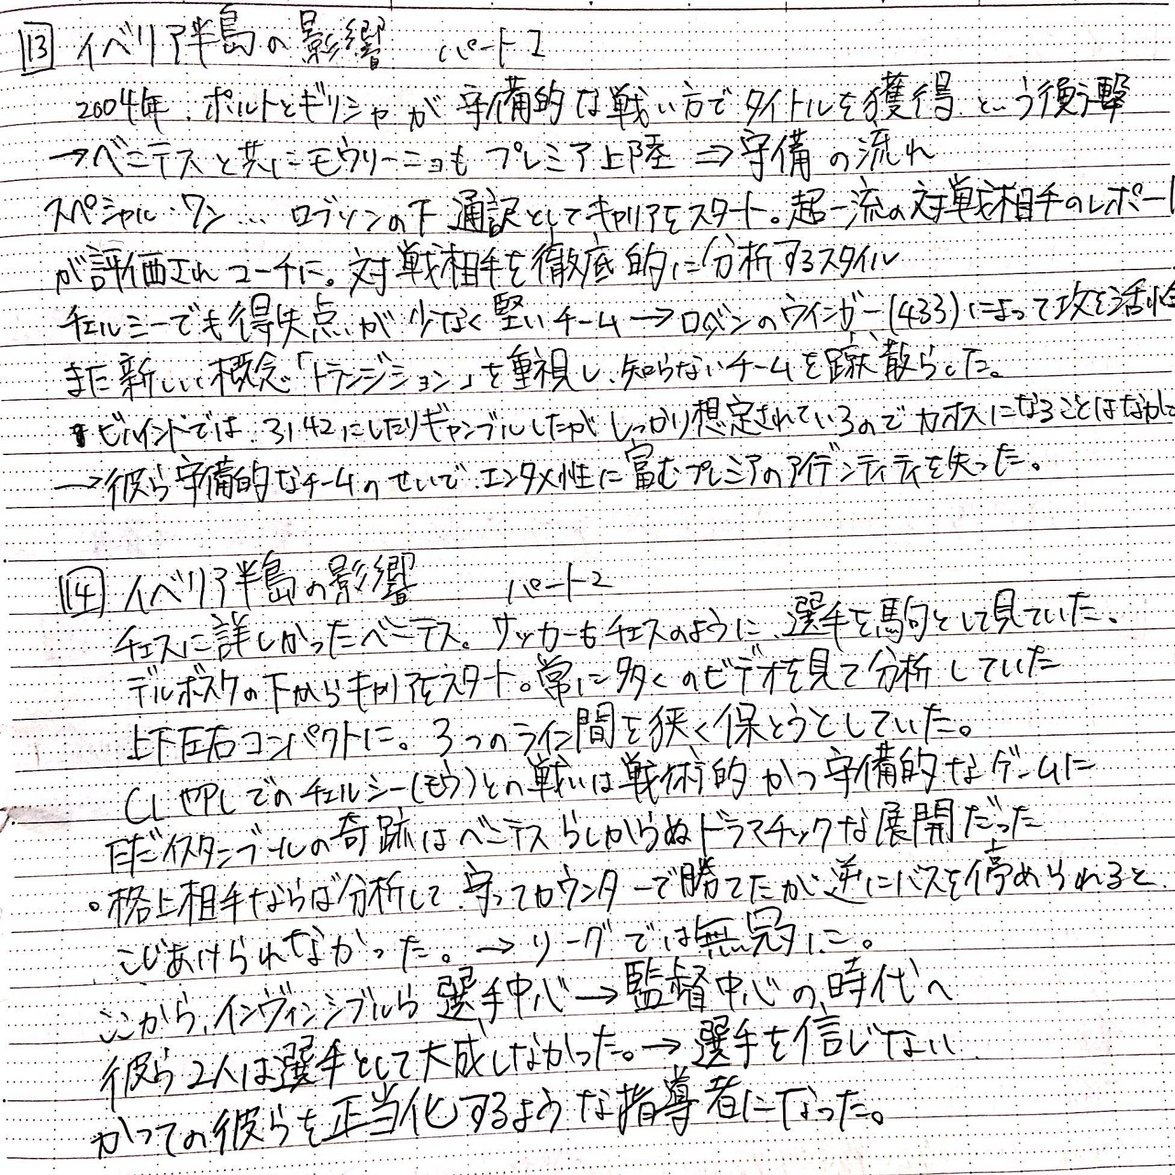 13 イベリア半島の影響 パート1
2004年、ポルトとギリシャが守備的な戦い方でタイトルを獲得、という衝撃
→ベニテスと共にモウリーニョもプレミア上陸 ⇒ 守備の流れ
スペシャル・ワン… ロブソンの下、通訳としてキャリアをスタート。超一流の対戦相手のレポート
が評価されコーチに。対戦相手を徹底的に分析するスタイル
チェルシーでも得失点が少なく堅いチーム→ロッベンのウインガー(433)によって攻を活性
また新しい概念「トランジション」を重視し、知らないチームを蹴散らした。
ビハインドでは、3142にしたりギャンブルしたが、しっかり想定されているのでカオスになることはなかった
→彼ら守備的なチームのせいで、エンタメ性に富むプレミアのアイデンティティを失った。
14 イベリア半島の影響 パート2
チェスに詳しかったベニテス。サッカーもチェスのように、選手を駒として見ていた。
デルボスケの下からキャリアをスタート。常に多くのビデオを見て分析していた
上下左右コンパクトに。3つのライン間を狭く保とうとしていた。
CLやPLでのチェルシー(モウ)との戦いは戦術的かつ守備的なゲームに
ただイスタンブールの奇跡はベニテスらしからぬドラマチックな展開だった
。格上相手ならば分析して、守ってカウンターで勝てたが、逆にバスを停められると、
こじあけられなかった。→リーグでは無冠に。
ここから、インヴィンシブルら選手中心→監督中心の時代へ
彼ら2人は選手として大成しなかった。→選手を信じない
かつての彼らを正当化するような指導者になった。